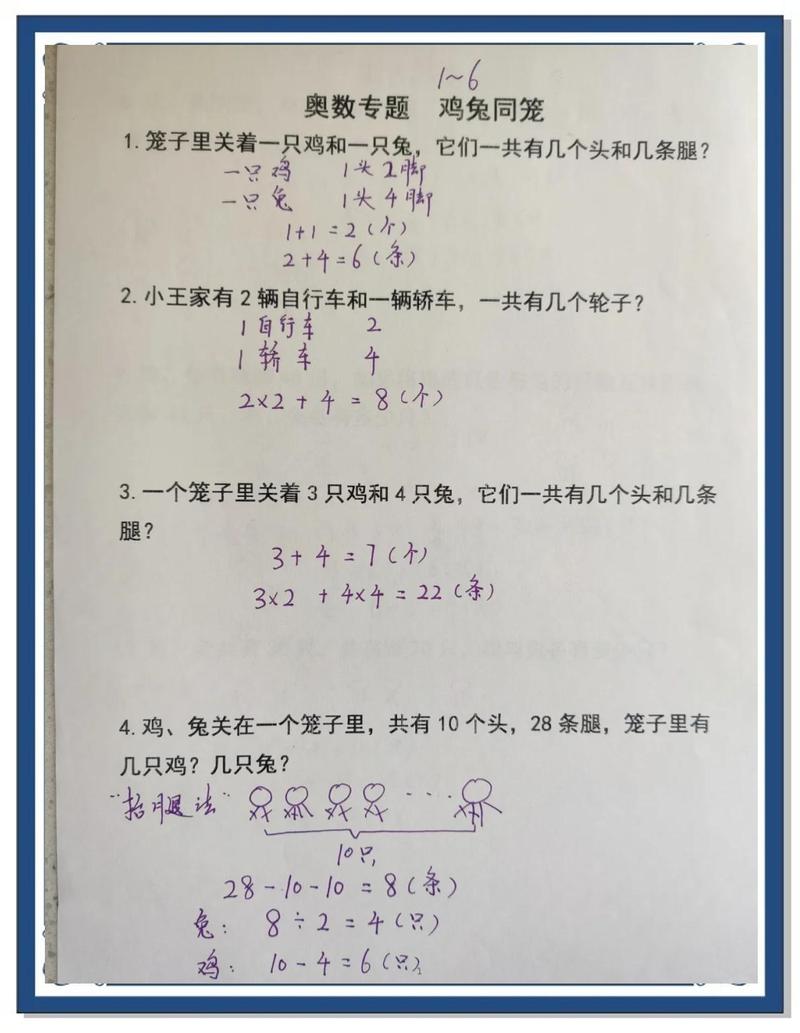 1~6
奥数专题 鸡兔同笼
1. 笼子里关着一只鸡和一只兔，它们一共有几个头和几条腿？
一只鸡 1头2脚
一只兔 1头4脚
1+1=2(个)
2+4=6(条)
2. 小王家有2辆自行车和一辆轿车，一共有几个轮子？
1自行车 2
1轿车 4
2×2+4=8(个)
3. 一个笼子里关着3只鸡和4只兔，它们一共有几个头和几条
腿？
3+4=7(个)
3×2+4×4=22(条)
4. 鸡、兔关在一个笼子里，共有10个头，28条腿，笼子里有
几只鸡？几只兔？
"抬腿法" ...
10只
28-10-10=8(条)
兔：8÷2=4(只)
鸡：10-4=6(只)